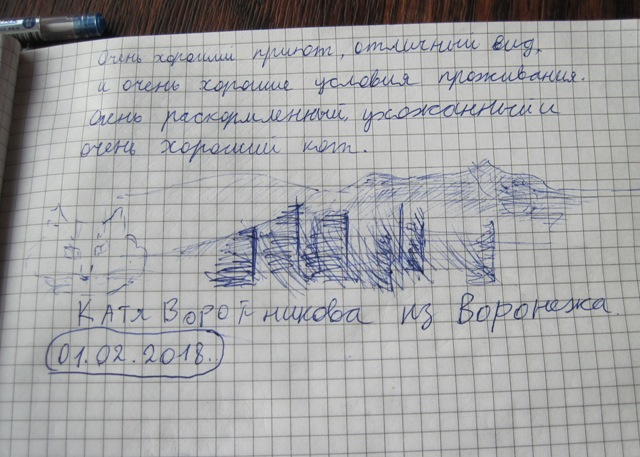 Очень хороший приют, отличный вид,
и очень хорошие условия проживания.
Очень раскормленный, ухожанный и
очень хороший кот.
Катя Воротникова из Воронежа.
01.02.2018.